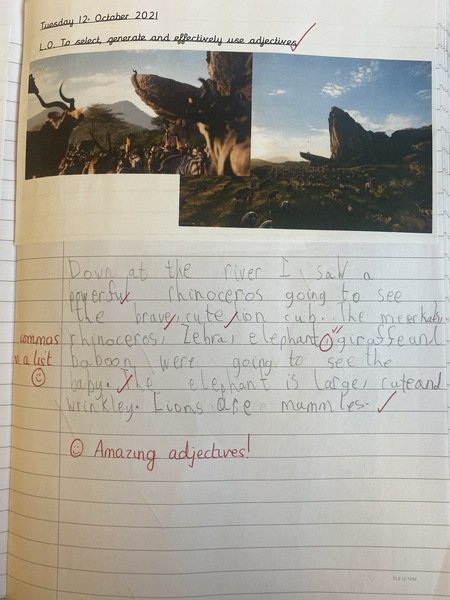 Tuesday 12. October 2021
L.O. To select, generate and effectively use adjectives
Down at the river I saw a
powerful rhinoceros going to see
the brave, cute lion cub. The meerkats,
commas rhinoceros, Zebra, elephant, giraffe and
in a list baboon were going to see the
baby. The elephant is large, cute and
wrinkley. Lions are mammles.
Amazing adjectives!